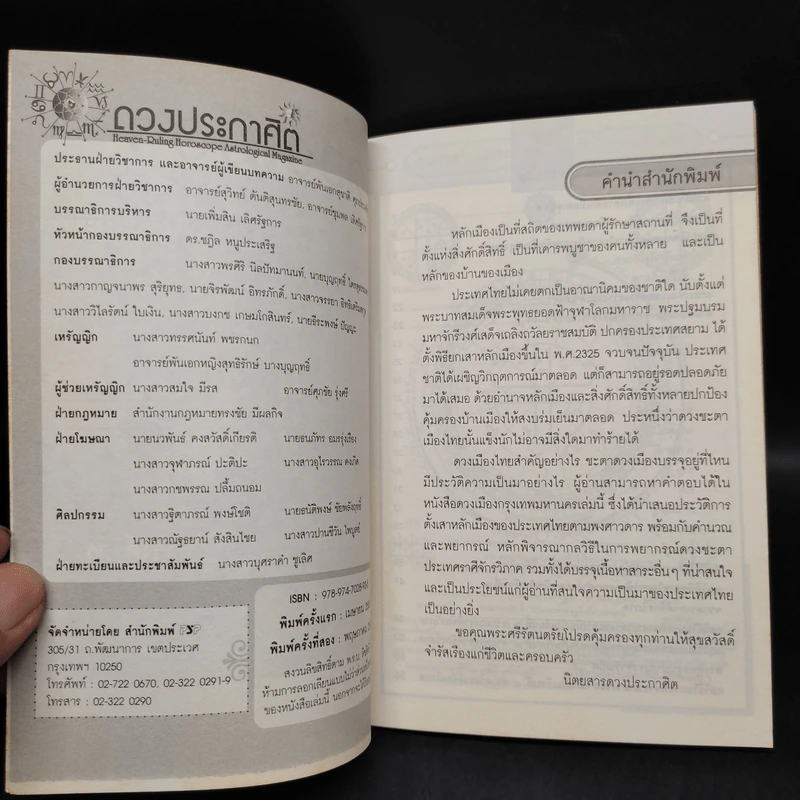 ดวงประกาศิต
Heaven-Ruling Horoscope Astrological Magazine
ประธานฝ่ายวิชาการ และอาจารย์ผู้เขียนบทความ อาจารย์พันเอกสุชาติ
ผู้อำนวยการฝ่ายวิชาการ อาจารย์สุวิทย์ ตันติสุนทรชัย, อาจารย์ชุมพล
บรรณาธิการบริหาร นายเพิ่มสิน เลิศรัฐการ
หัวหน้ากองบรรณาธิการ ดร.ชฎิล หนูประเสริฐ
กองบรรณาธิการ นางสาวพรศิริ นิลปัทมานนท์, นายบุญฤทธิ์
นางสาวกาญจนาพร สุริยุทธ, นายจิรพัฒน์ อิทรภักดิ์, นางสาวจรรยา
นางสาววิไลรัตน์ ใบเงิน, นางสาวบงกช เกษมโกสินทร์, นายธีระพงษ์ ปัญญะ
เหรัญญิก นางสาวทรรศนันท์ พชรกนก
อาจารย์พันเอกหญิงสุทธิรักษ์ บางบุญฤทธิ์
ผู้ช่วยเหรัญญิก นางสาวสมใจ มีรส อาจารย์ศุภชัย รุ่งศรี
ฝ่ายกฎหมาย สำนักงานกฎหมายทรงชัย มีผลกิจ
ฝ่ายโฆษณา นายนวพันธ์ คงสวัสดิ์เกียรติ นายธนภัทร อมรรุ่งเรือง
นางสาวจุฬาภรณ์ ปะติปะ นางสาวอุไรวรรณ คงเกิด
นางสาวกชพรรณ ปลื้มถนอม
ศิลปกรรม นางสาวฐิตาภรณ์ พงษ์โชติ นายธนัติพงษ์ ชัยพลังฤทธิ์
นางสาวณัฐธยาน์ สังสินไชย นางสาวปานชีวัน ไพบูลย์
ฝ่ายทะเบียนและประชาสัมพันธ์ นางสาวบุศราคำ ชูเลิศ
จัดจำหน่ายโดย สำนักพิมพ์ PSP
305/31 ถ.พัฒนาการ เขตประเวศ
กรุงเทพฯ 10250
โทรศัพท์ : 02-722 0670, 02-322 0291-9
โทรสาร : 02-322 0290
ISBN : 978-974-7026-
พิมพ์ครั้งแรก : เมษายน
พิมพ์ครั้งที่สอง : พฤษภาคม
สงวนลิขสิทธิ์ตาม พ.ร.บ.
ห้ามการลอกเลียนแบบไม่ว่าส่วนใด
ของหนังสือเล่มนี้ นอกจาก
คำนำสำนักพิมพ์
หลักเมืองเป็นที่สถิตของเทพยดาผู้รักษาสถานที่ จึงเป็นที่
ตั้งแห่งสิ่งศักดิ์สิทธิ์ เป็นที่เคารพบูชาของคนทั้งหลาย และเป็น
หลักของบ้านของเมือง
ประเทศไทยไม่เคยตกเป็นอาณานิคมของชาติใด นับตั้งแต่
พระบาทสมเด็จพระพุทธยอดฟ้าจุฬาโลกมหาราช พระปฐมบรม
มหาจักรีวงศ์เสด็จเถลิงถวัลยราชสมบัติ ปกครองประเทศสยาม ได้
ตั้งพิธียกเสาหลักเมืองขึ้นใน พ.ศ.2325 จวบจนปัจจุบัน ประเทศ
ชาติได้เผชิญวิกฤตการณ์มาตลอด แต่ก็สามารถอยู่รอดปลอดภัย
มาได้เสมอ ด้วยอำนาจหลักเมืองและสิ่งศักดิ์สิทธิ์ทั้งหลายปกป้อง
คุ้มครองบ้านเมืองให้สงบร่มเย็นมาตลอด ประหนึ่งว่าดวงชะตา
เมืองไทยนั้นแข็งนักไม่อาจมีสิ่งใดมาทำร้ายได้
ดวงเมืองไทยสำคัญอย่างไร ชะตาดวงเมืองบรรจุอยู่ที่ไหน
มีประวัติความเป็นมาอย่างไร ผู้อ่านสามารถหาคำตอบได้ใน
หนังสือดวงเมืองกรุงเทพมหานครเล่มนี้ ซึ่งได้นำเสนอประวัติการ
ตั้งเสาหลักเมืองของประเทศไทยตามพงศาวดาร พร้อมกับคำนวณ
และพยากรณ์ หลักพิจารณากลวิธีในการพยากรณ์ดวงชะตา
ประเทศราศีจักรวิภาค รวมทั้งได้บรรจุเนื้อหาสาระอื่นๆ ที่น่าสนใจ
และเป็นประโยชน์แก่ผู้อ่านที่สนใจความเป็นมาของประเทศไทย
เป็นอย่างยิ่ง
ขอคุณพระศรีรัตนตรัยโปรดคุ้มครองทุกท่านให้สุขสวัสดิ์
จำรัสเรืองแก่ชีวิตและครอบครัว
นิตยสารดวงประกาศิต